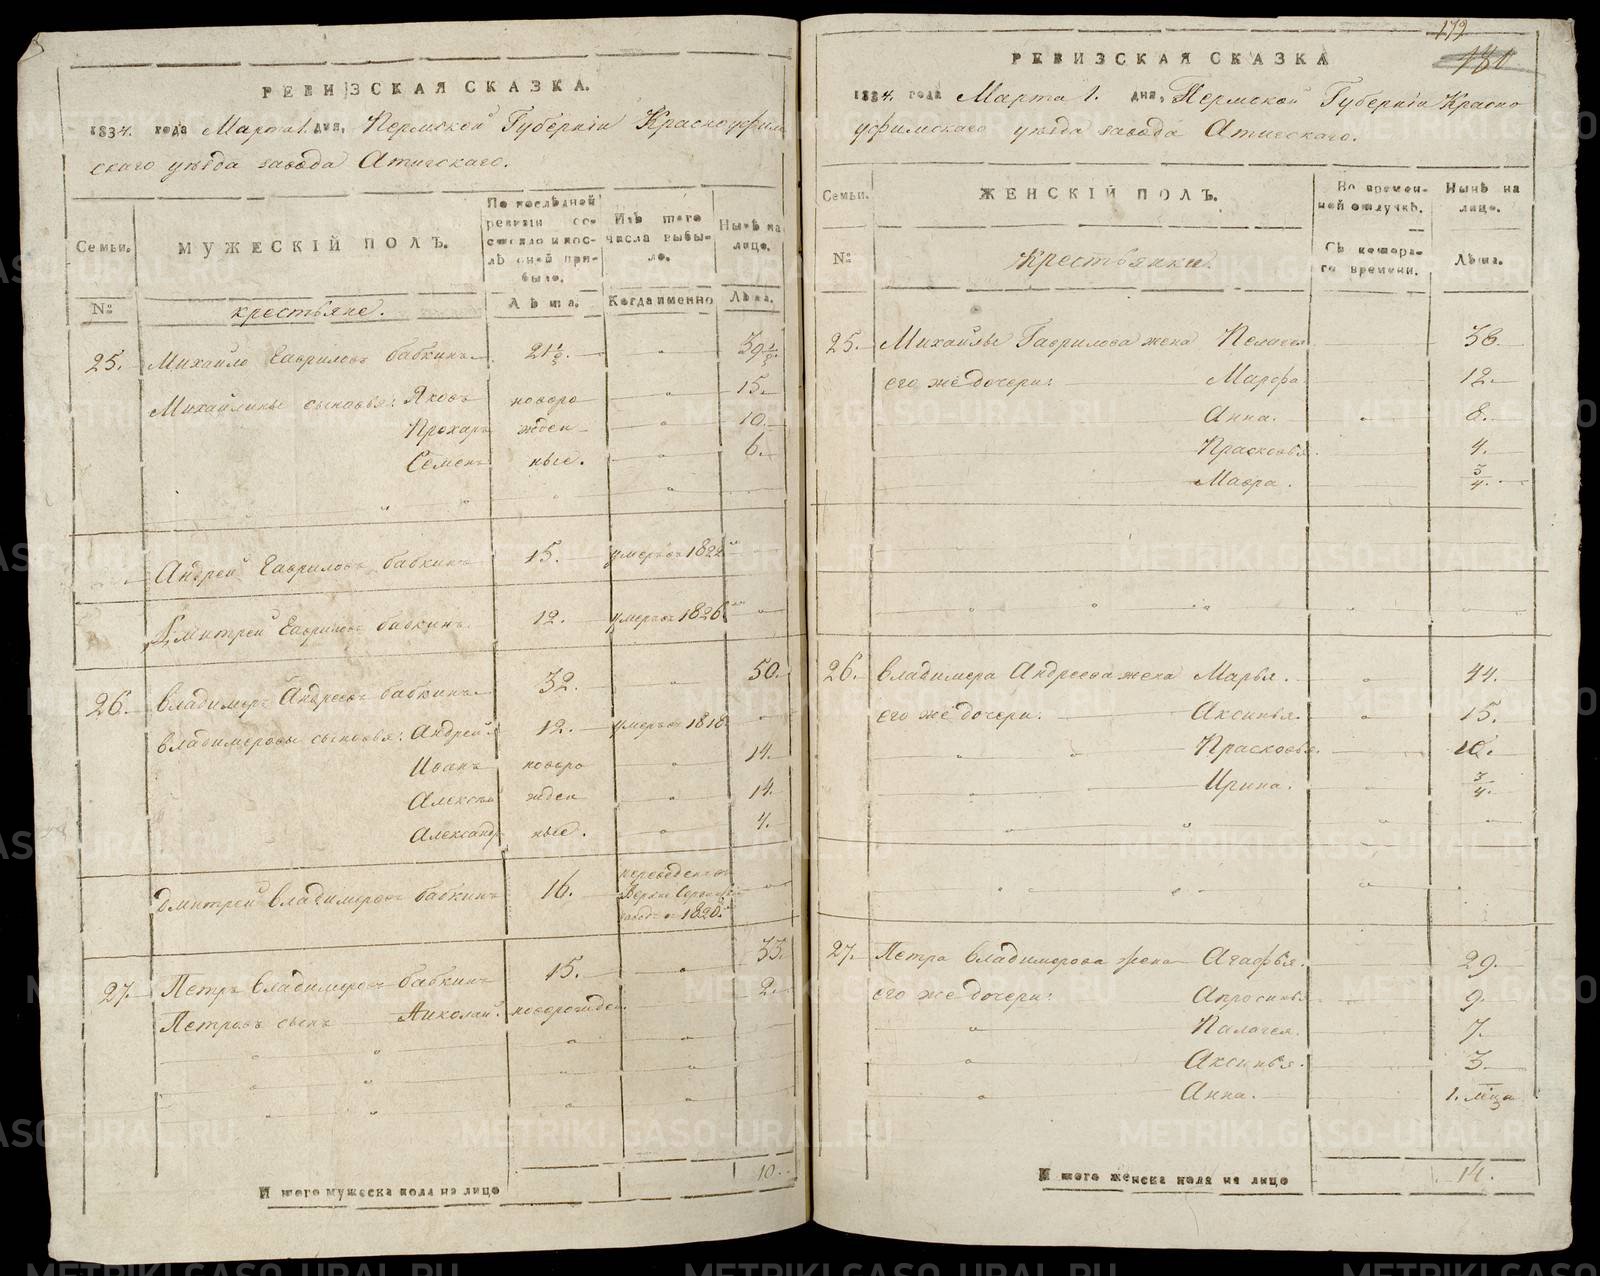 РЕВИЗСКАЯ СКАЗКА.
1834. года Марта 1. дня, Пермской Губернiи Красноуфим
скаго уѣзда завода Атигскаго.
Семьи.
МУЖЕСКIЙ ПОЛЪ.
По послѣдней ревизiи состояло и послѣ оной прибыло.
Изъ того числа выбыло.
Нынѣ на лицо.
№
крестьяне.
Лѣта.
Когда именно
Лѣта.
25. Михайло Гавриловъ бабкинъ 21½. " 39½.
Михайлины сыновья: Яковъ новоро " 15.
Прохоръ жден " 10.
Семенъ ные. " 6.
Андрей Гавриловъ бабкинъ 15. умеръ въ 1822
Дмитрей Гавриловъ бабкинъ 12. умеръ въ 1826. "
26. Владимеръ Андреевъ бабкинъ 32. " 50.
Владимеровы сыновья: Андрей 12. умеръ въ 1818
Иванъ новоро " 14.
Алексей жден " 14.
Александръ ные. " 4.
Дмитрей Владимеровъ бабкинъ 16. переведенъ въ Верхъ Серг заводъ въ 1820. "
27. Петръ Владимеровъ бабкинъ 15. " 33.
Петровъ сынъ Николай. новорожден. 2.
И того мужеска пола на лицо 10.
179
181
РЕВИЗСКАЯ СКАЗКА
1834. года Марта 1. дня, Пермской Губернiи Красно
уфимскаго уѣзда завода Атигскаго.
Семьи.
ЖЕНСКIЙ ПОЛЪ.
Во временной отлучкѣ.
Нынѣ на лицо.
№
Крестьянки.
Съ котораго времени.
Лѣта.
25. Михайлы Гаврилова жена Пелагея 38.
его же дочери: Марфа 12.
Анна. " 8.
Прасковья. 4.
Мавра. ¾.
26. Владимера Андреева жена Марья. " 44.
его же дочери: Аксинья. " 15.
" " Прасковья. 10.
" Ирина. " ¾.
27. Петра Владимерова жена Агафья. 29.
его же дочери: Апросинья 9.
" Палагея. 7.
" Аксинья. 3.
" Анна. 1. мца
И того женска пола на лицо 14.
METRIKI.GASO-URAL.RU